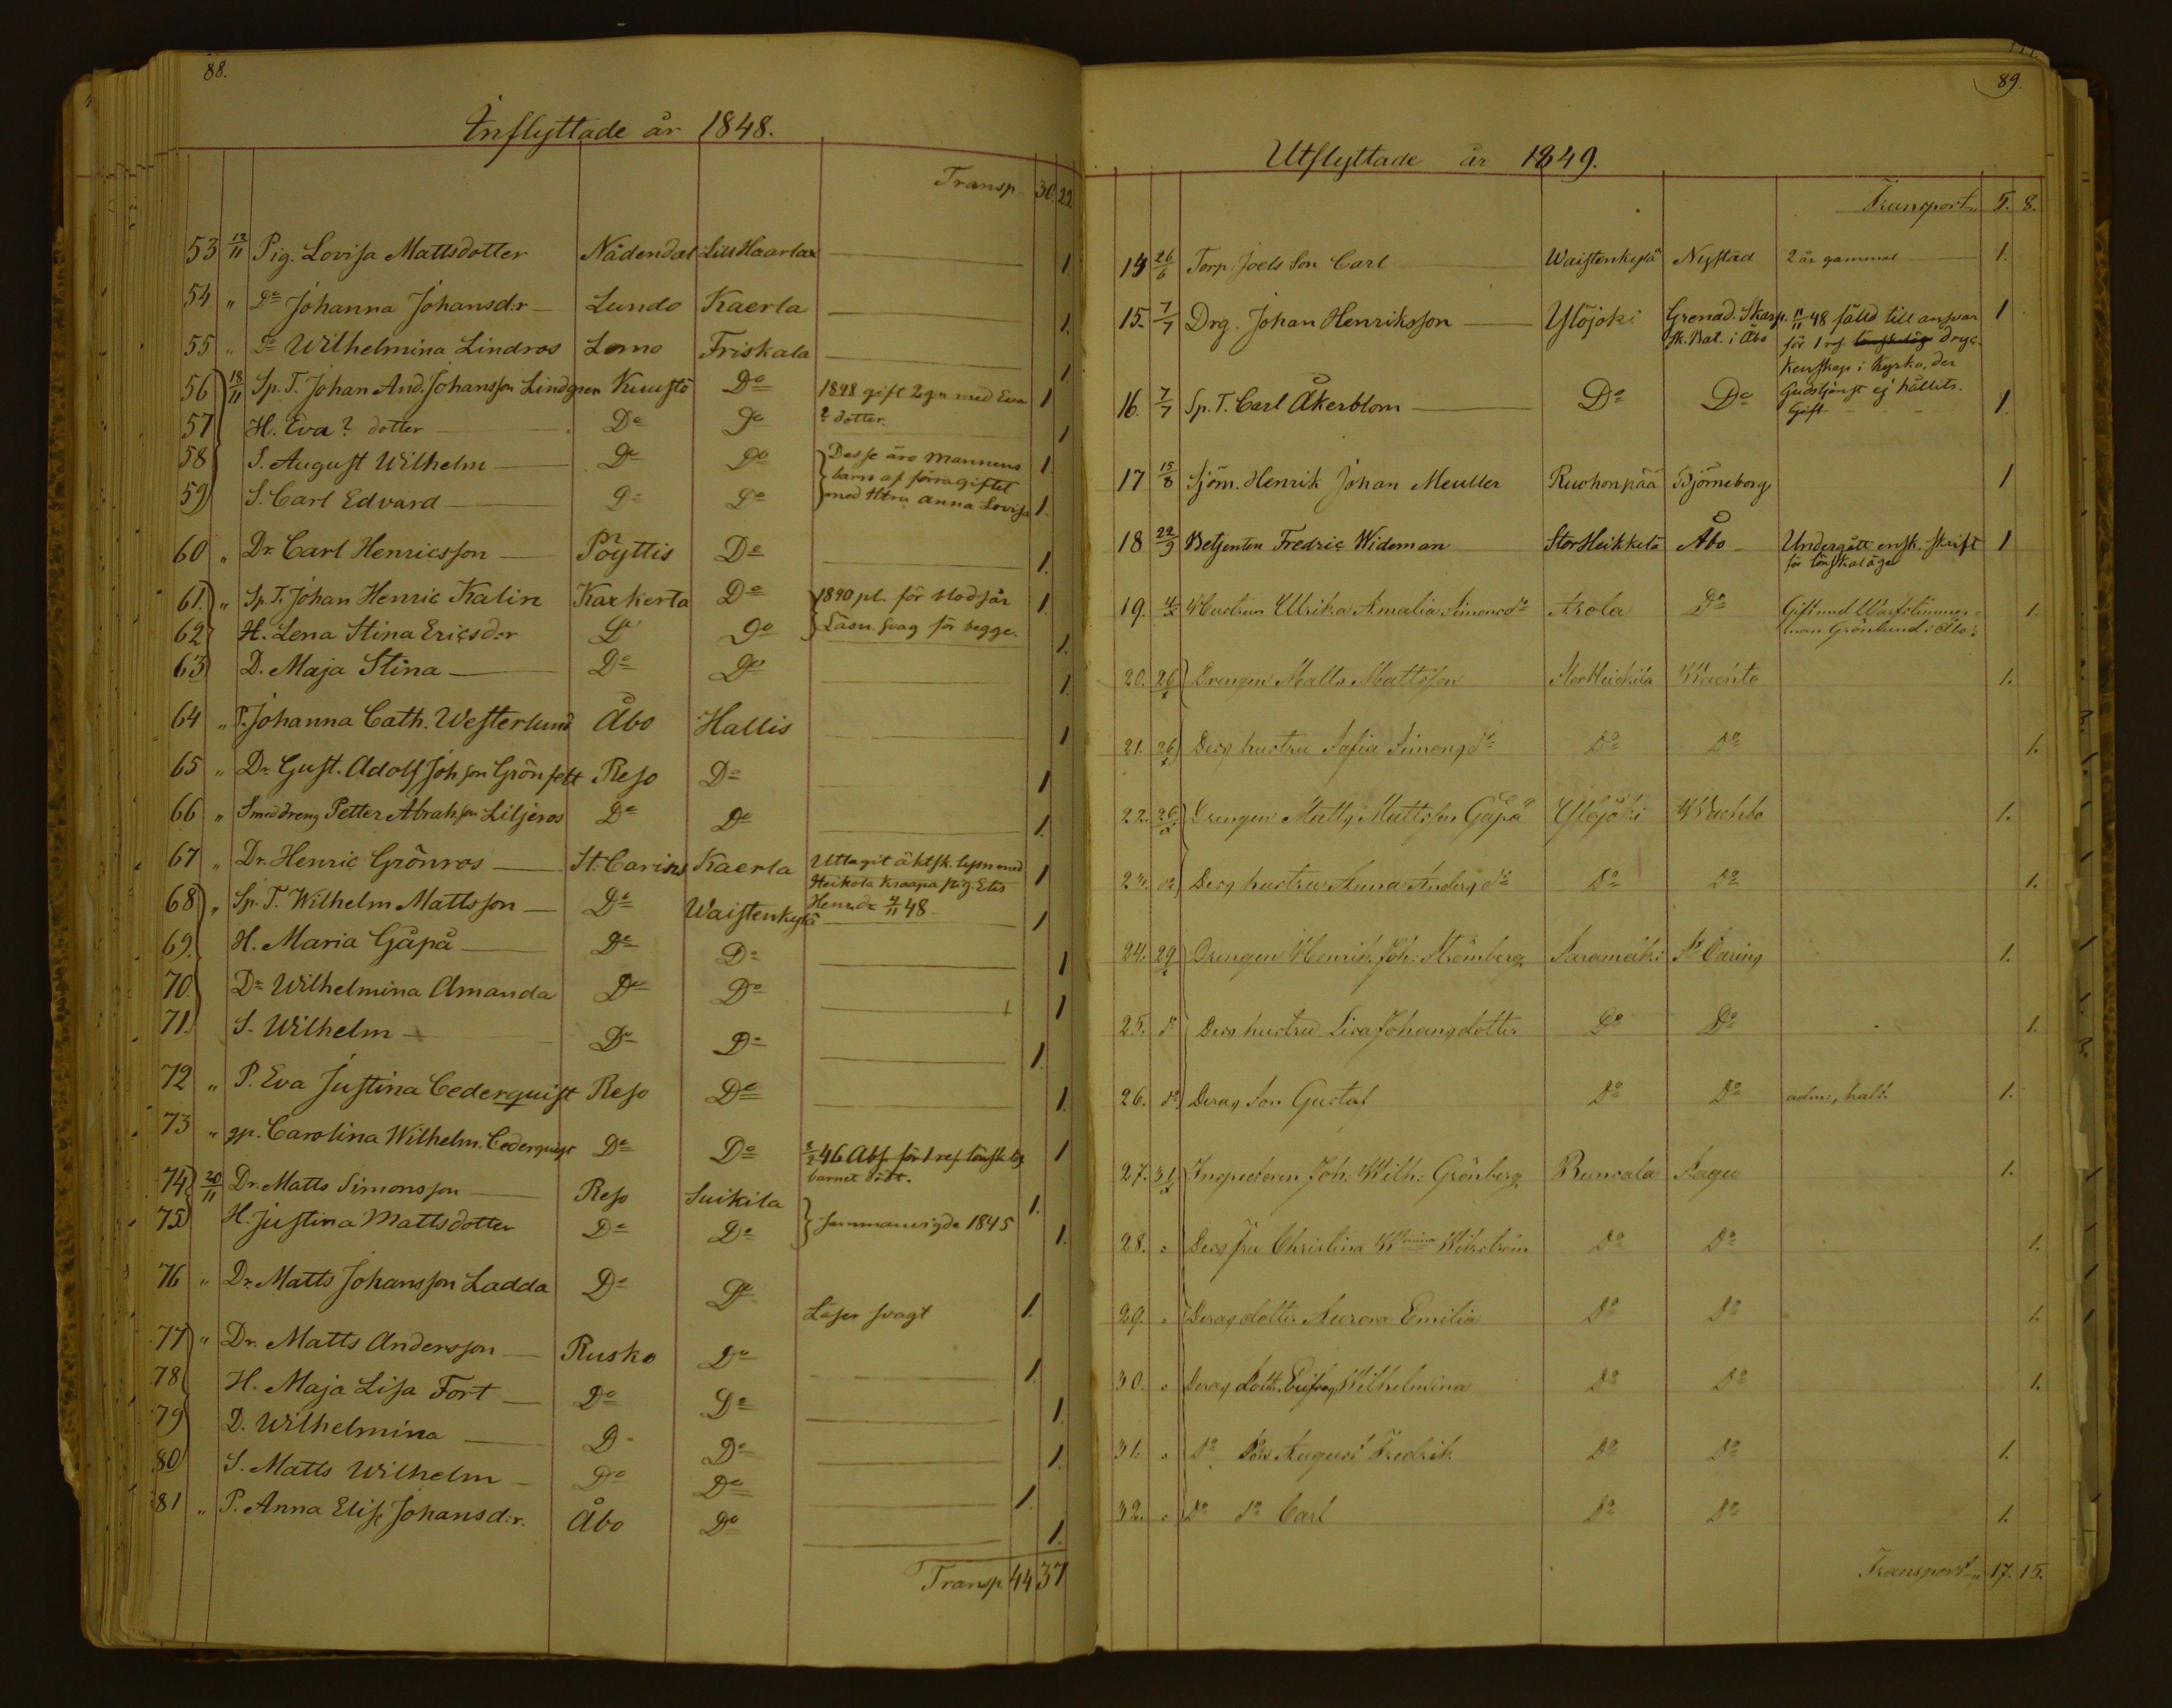 88.
Inflyttade år 1848.
Transp. 30. 22
53 12/11 Pig. Lovisa Mattsdotter Nådendal Lill Haarla 1.
54 " Do Johanna Johansd:r Lundo Kaerla 1.
55 " Do Wilhelmina Lindros Lemo Friskala 1.
56 18/11 Sp. T. Johan And. Johansson Lindgren Kuusto Do 1848 gift 2 gn med Eva 1
57 H. Eva ? dotter Do Do ? dotter. 1
58 S. August Wilhelm Do Do Desse äro mannens 1
barn af förra giftet
59 S. Carl Edvard Do Do med Htru Anna Lovisa 1.
60 " Dr. Carl Henricsson Pöyttis Do 1.
61. " Sp. T. Johan Henric Kalin Karkerta Do 1840 pl. för 1.
62 H. Lena Stina Ericsd:r Do Do Läsn. svag för begge. 1.
63 D. Maja Stina Do Do 1.
64 " P. Johanna Cath. Westerlund Åbo Hallis 1
65 " Dr. Gust. Adolf Joh.son Grönfelt Reso Do 1
66 " Smeddreng Petter Abrah.son Liljeros Do Do 1.
67 " Dr. Henric Grönroos St. Carins Kaerla Uttagit äktsk. lysn med 1
Heikola Kraapa pig. Elis
68 " Sp. T. Wilhelm Mattsson Do Waistenkylä Henr.dr 4/11 48 1
69. H. Maria Gåpå Do Do 1
70. Dr Wilhelmina Amanda Do Do 1
71. S. Wilhelm Do Do 1.
72 " P. Eva Justina Cederquist Reso Do 1.
73 " qp. Carolina Wilhelm. Cederquist Do Do 46 Abs. för 1 res. lönsk.läg 1
barnet dödt.
74 20/11 Dr. Matts Simonsson Reso Suikila 1.
75 H. Justina Mattsdotter Do Do sammanvigde 1845 1.
76 " Dr. Matts Johansson Ladda Do Do Läser svagt 1.
77 " Dr. Matts Andersson Rusko Do 1.
78 H. Maja Lisa Fort Do Do 1.
79 D. Wilhelmina Do Do 1.
80 S. Matts Wilhelm Do Do 1.
81 " P. Anna Elis. Johansd:r. Åbo Do 1.
Transp. 44 37
89.
Utflyttade år 1849.
Transport 5. 8.
14 26/6 Torp. Joels Son Carl Waistenkylä Nystad 2 år gammal 1.
15. 7/7 Drg. Johan Henriksson Ylöjoki Grenad. Skarp. 11/11 48 fälld till ansvar 1
sk. Bat. i Åbo för 1 res. dryc-
kenskap i Kyrka, der
16. 7/7 Sp. T. Carl Åkerblom Do Do Gudstjenst ej hållits. 1.
Gift
17 15/8 Sjöm. Henrik Johan Meuller Ruohonpää Björneborg 1
18 22/9 Betjenten Fredric Wideman StorHeikkilä Åbo Undergått ensk. skrift 1
för lönskaläge
19. Hustrun Ulrika Amalia Simonsdr Arola Do Gift med Warfstimmer- 1.
man Grönlund i Åbo.
20. 26 Drengen Matts Mattsson StorHeickila Wachto 1.
21. 26 Dess hustru Sofia Simonsdr Do Do 1.
22. 26 Drengen Matts Mattsson Gåpå Ylöjoki Wachto 1.
23. do Dess hustru Anna Andersdr Do Do 1.
24. 29 Drengen Henrik Joh: Strömberg Saramäki St Carins 1.
25. do Dess hustru Lisa Johansdotter Do Do 1.
26. do Deras Son Gustaf Do Do adm:, halt. 1.
27. 31 Inspectoren Joh: Wilh: Grönberg Runsala Sagu 1.
28. " Dess fru Christina Wmina Do Do 1.
29. " Deras dotter Aurora Emilia Do Do 1.
30. " Deras dott. Eufros. Wilhelmina Do Do 1.
31. " Do Son August Fredrik Do Do 1.
32. " Do do Carl Do Do 1.
Transport 17. 15.